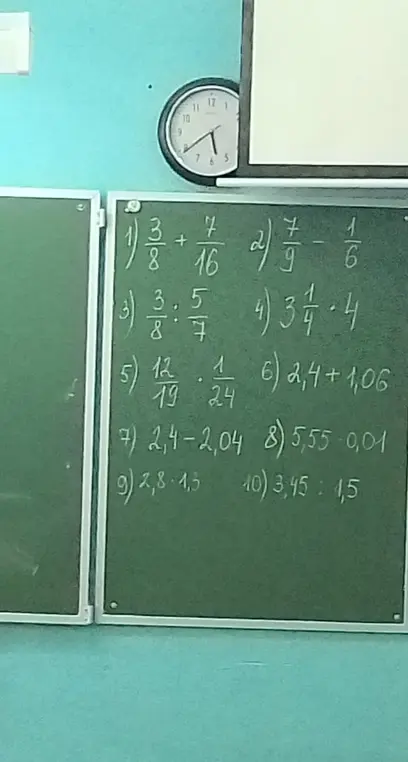 12 1
11
10
9
8
7 6 5
1) 3/8 + 7/16 2) 7/9 - 1/6
3) 3/8 : 5/7 4) 3 1/4 · 4
5) 12/19 · 1/24 6) 2,4 + 1,06
7) 2,4 - 2,04 8) 5,55 · 0,01
9) 2,8 · 1,3 10) 3,45 : 1,5